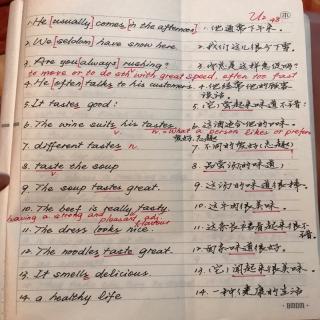 U2
1. He [usually] comes in the afternoon.
1. 他通常下午来。
2. We [seldom] have snow here.
2. 我们这儿很少下雪。
3. Are you [always] rushing?
to move or to do sth with great speed, often too fast
4. He [often] talks to his customers.
4. 他经常他的顾客谈话。
5. It tastes good.
6. The wine suits his tastes.
v. n. = what a person likes or prefers
7. different tastes n
8. taste the soup
v
8. 品尝汤
9. The soup tastes great.
9. 这汤的味道很棒。
10. The beef is really tasty.
having a strong and pleasant flavour adj.
10. 这牛肉很美味。
11. The dress looks nice.
12. The noodles taste great.
12. 面条味道很好。
13. It smells delicious.
13. (它)闻起来很美味。
14. a healthy life
14. 一种健康的生活